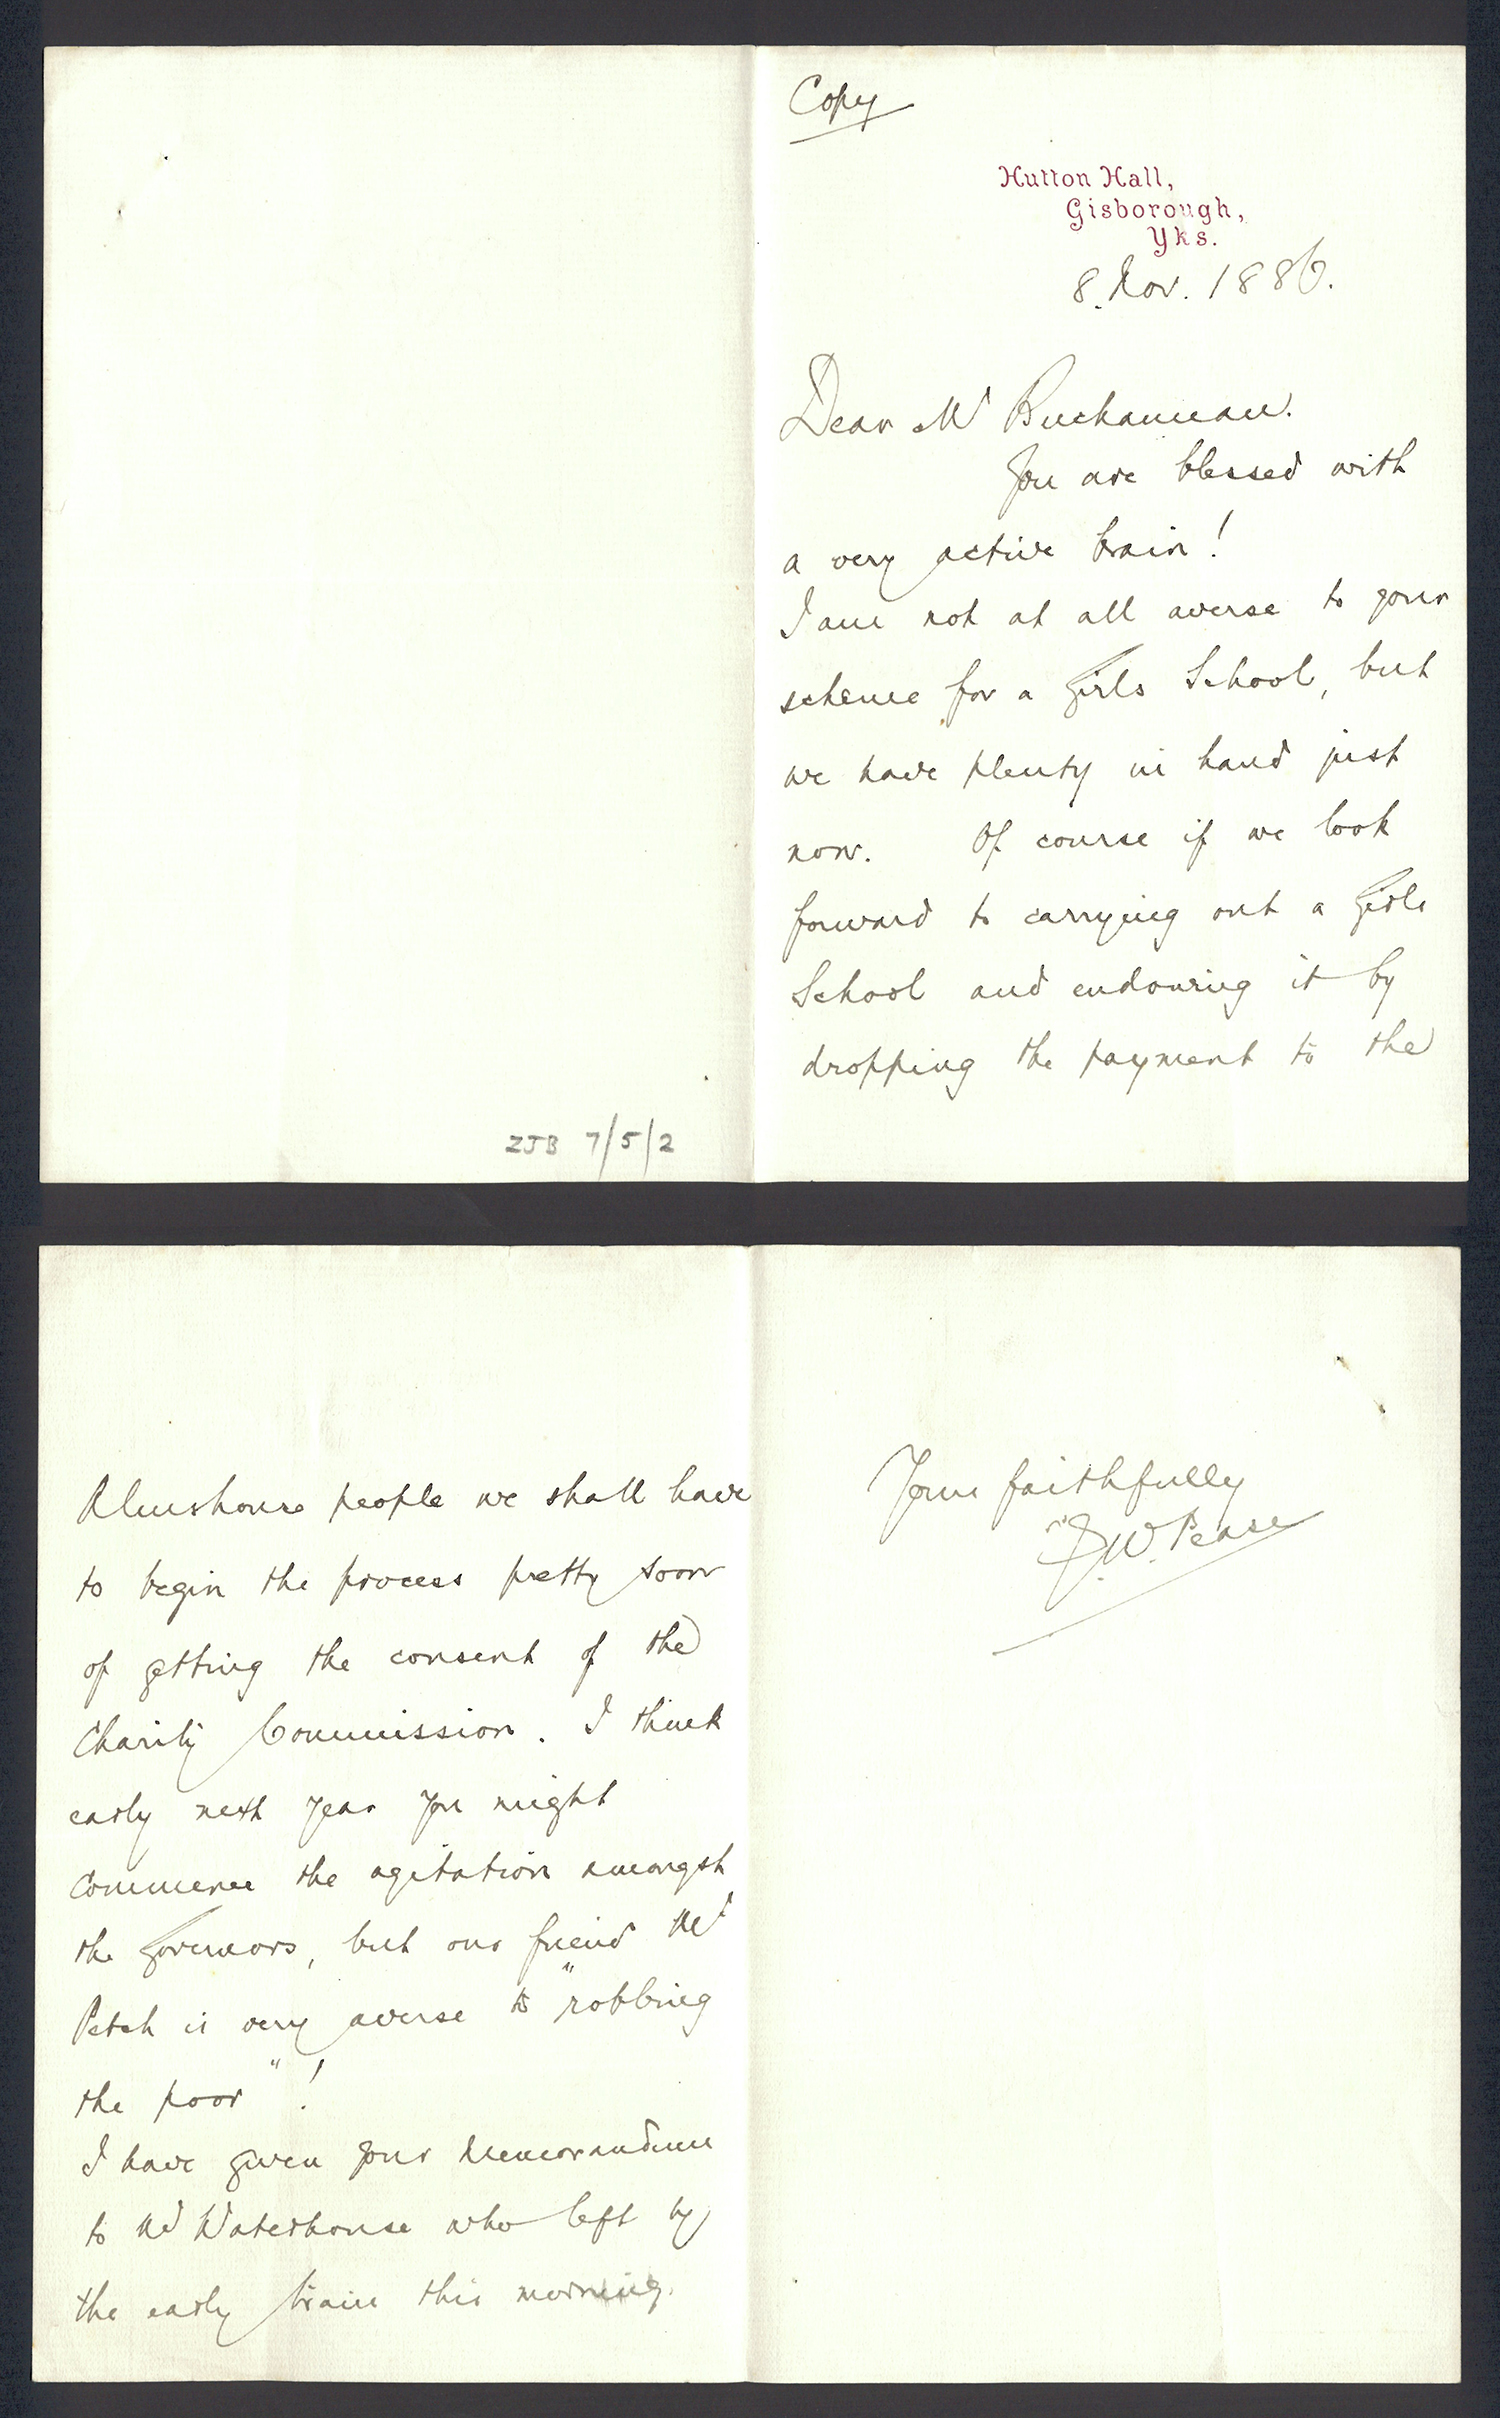 Copy
Hutton Hall,
Gisborough,
Yks.
8. Nov. 1886.
Dear Mr Buchannan.
You are blessed with
a very active brain!
I am not at all averse to your
scheme for a Girls School, but
we have plenty in hand just
now. Of course if we look
forward to carrying out a Girls
School and endowing it by
dropping the payment to the
ZJB 7/5/2
Almshouse people we shall have
to begin the process pretty soon
of getting the consent of the
Charity Commission. I think
early next year you might
commence the agitation amongst
the Governors, but our friend Mr
Petch is very averse to "robbing
the poor"!
I have given your Memorandum
to Mr Waterhouse who left by
the early train this morning.
Yours faithfully
J. W. Pease